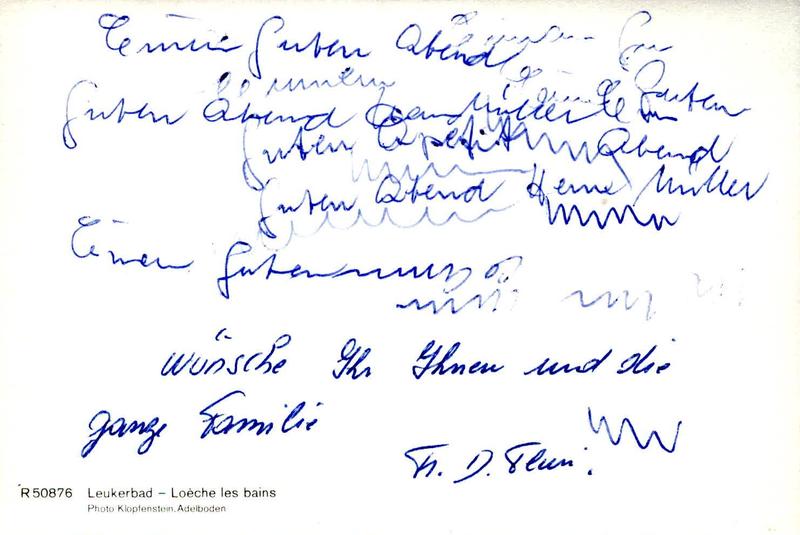 Einen Guten Abend
Einen Gu
Einen
Guten Abend Frau Müller Ein Guten
Guten Appetit Abend
Guten Abend Herne Müller
Einen Guten
wünsche Ihr Ihnen und die
ganze Familie
Fr. D.
R 50876 Leukerbad – Loèche les bains
Photo Klopfenstein, Adelboden